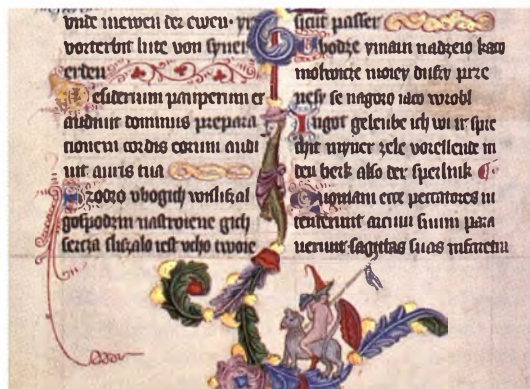 vnde mewen der ewen· yr
vorterbit lute von syner
erden
Desiderium pauperum ex
audiuit dominus prepara
cionem cordis eorum audi
uit auris tua
Szodzo vbogich wisluszal
gospodzin nastroiene gich
sercza sluszalo iest vcho twoie
sicut passer
W bodze ymam nadzeio kaco
molwicze moiey duszy prze
nesy se na goro iaco wrobl
In got geleube ich wi ir spre
chit myner zele vorellende in
den berk also der sperlink
Quoniam ecce peccatores in
tenderunt arcum suum para
uerunt sagittas suas in faretra